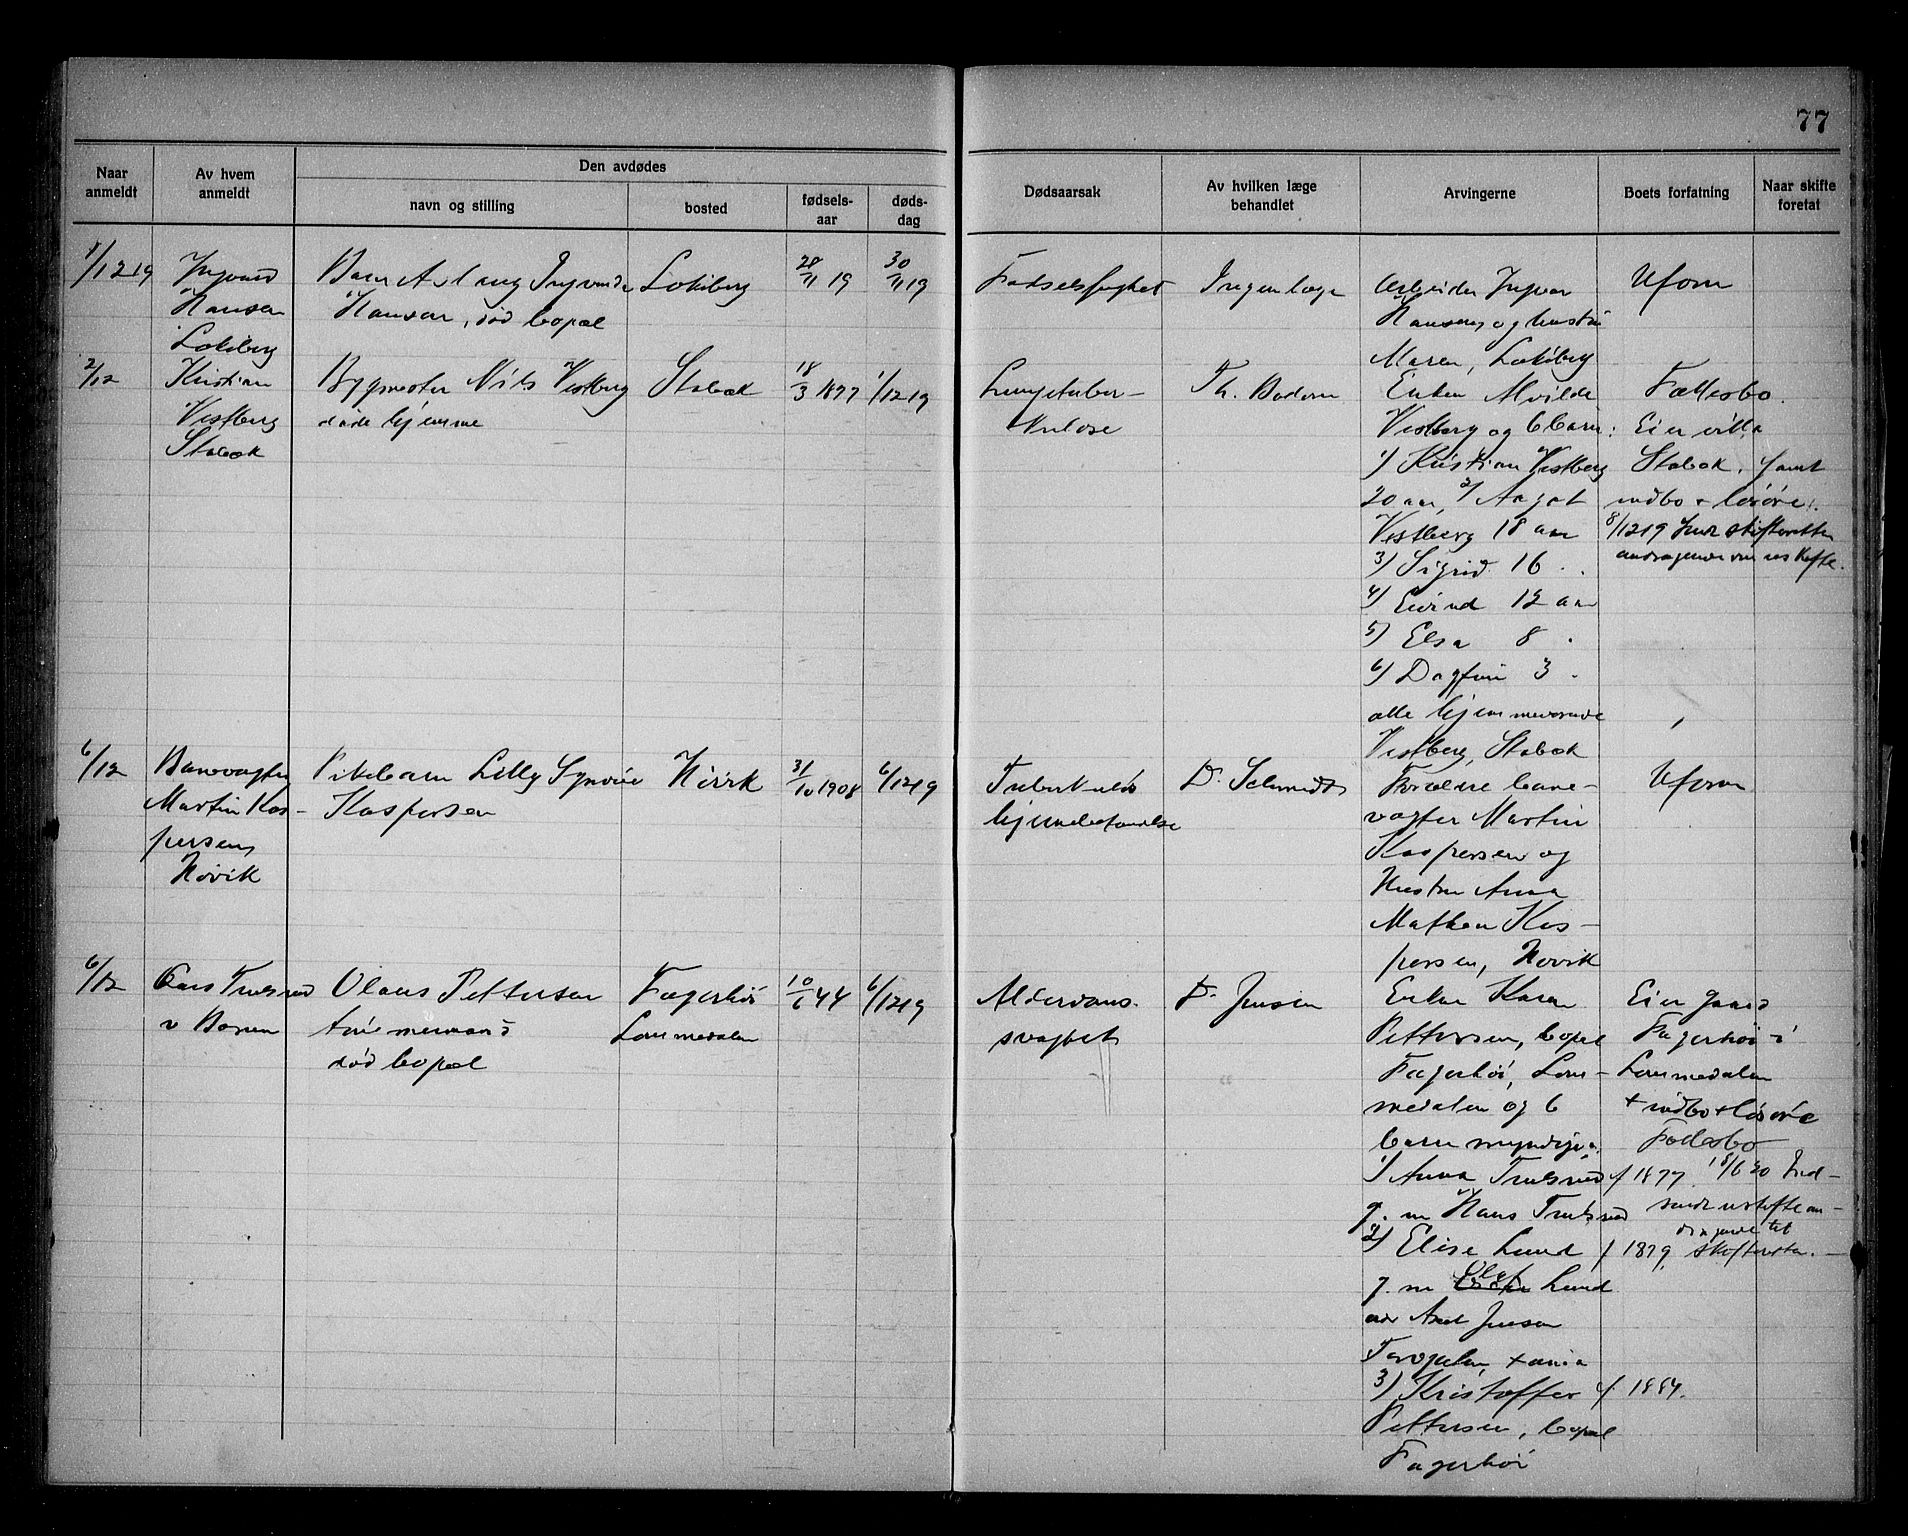 77
Naar anmeldt
Av hvem anmeldt
Den avdødes
navn og stilling
bosted
fødselsaar
dødsdag
Dødsaarsak
Av hvilken læge behandlet
Arvingerne
Boets forfatning
Naar skifte foretat
1/12 19
Ingvard
Hansen
Løkeberg
Barn Aslaug Ingvarda
Hansen, død bopæl
Løkeberg
28/11 19
30/11 19
Fødselssvaghet
Ingen læge
Arbeider Ingvar
Hansen og hustru
Maren, Løkeberg
Uform
2/12
Kristian
Vestberg
Stabæk
Bygmester Nils Vestberg
døde hjemme
Stabæk
18/3 1877
1/12 19
Lungetuber-
kulose
Th. Bodom
Enken
Vestberg og 6 barn:
1) Kristian Vestberg
20 aar, 2) Aagot
Vestberg 18 aar
3) Sigrid 16 .
4) Eivind 12 aar
5) Elsa 8 .
6) Dagfin 3 .
alle hjemmeværende
Vestberg, Stabæk
Fællesbo.
Eier villa
Stabæk. samt
indbo + løsøre.
8/12 19 skifteretten
andragende om uskifte.
6/12
Banevogter
Martin Kas-
persen,
Høvik
Pikebarn Lilly Synnøve
Kaspersen
Høvik
31/10 1908
6/12 19
Tuberkuløs
hjernebetændelse
Dr. Schmidt
Forældre bane-
vogter Martin
Kaspersen og
Hustru Anna
Mathea Kas-
persen, Høvik
Uform
6/12
Trulsrud
v Bærum
Olaus Pettersen
tømmermand
død bopæl
Fagerhøi
Lommedalen
10/6 44
6/12 19
Alderdoms-
svaghet
Dr. Jensen
Enke Karen
Pettersen, bopæl
Fagerhøi, Lom-
medalen og 6
barn myndige:
1) Anna Trulsrud f 1877
g. m Hans Trulsrud
2) Elise Lund f 1879
g. m Olaf Lund
adr Axel Jensen
3) Kristoffer f. 1884.
Pettersen, bopæl
Fagerhøi
Eier gaard
Fagerhøi i
Lommedalen
+ indbo + løsøre
Fællesbo
18/6 20 Ind-
sendt uskiftean-
dragende til
skifteretten.